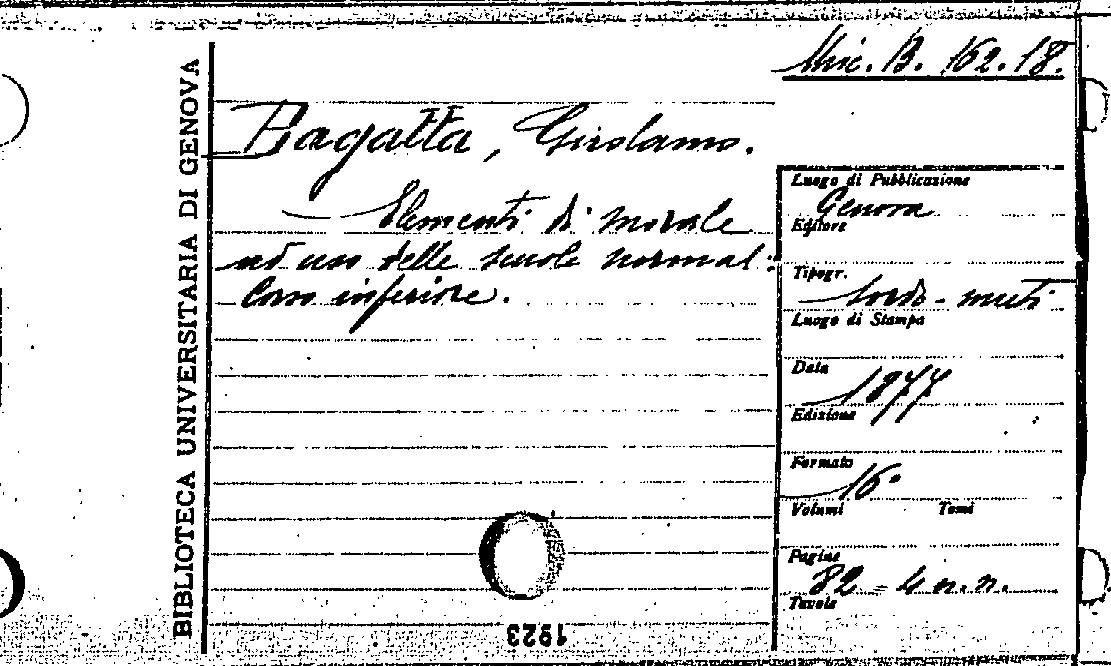 Misc. B. 162.18.
BIBLIOTECA UNIVERSITARIA DI GENOVA
Bagatta, Girolamo.
Elementi di morale
ad uso delle scuole normali
Corso inferiore.
Luogo di Pubblicazione
Genova
Editore
Tipogr.
Sordo-muti
Luogo di Stampa
Data
1877
Edizione
Formato
16°
Volumi Tomi
Pagine
82 - 4 n.n.
Tavole
1923